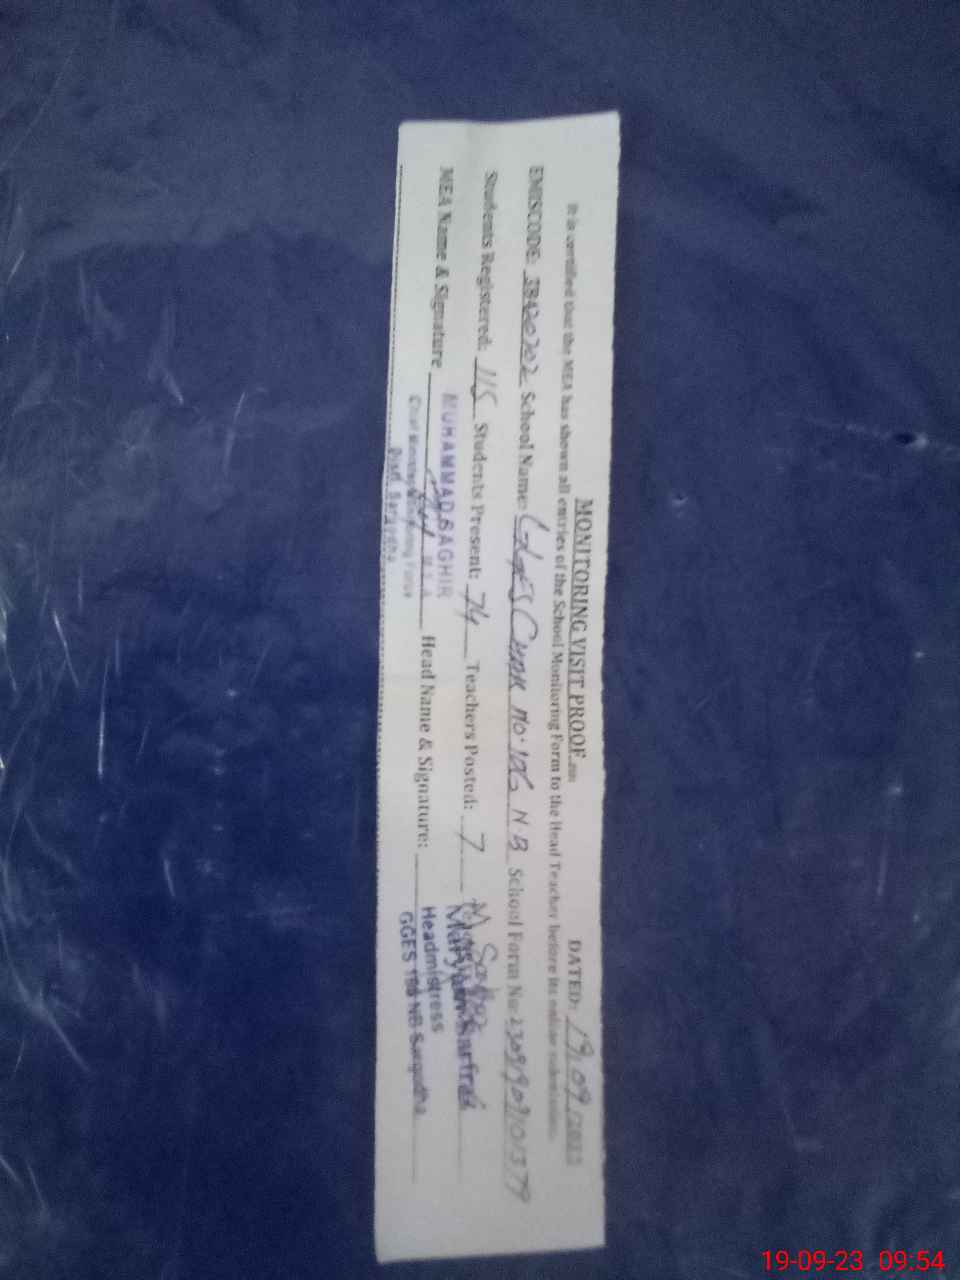 MONITORING VISIT PROOF DATED: 19.09.2023
It is certified that the MEA has shown all entries of the School Monitoring Form to the Head Teacher before its online submission.
EMISCODE: 38420702 School Name: GGES Chak No. 106 N.B School Form No: 23091909101379
Students Registered: 115 Students Present: 74 Teachers Posted: 7
MEA Name & Signature MUHAMMAD BAGHIR Head Name & Signature: Maryam Sarfraz
M.E.A Headmistress
Chief Minister Monitoring Force GGES 106 NB Sargodha
Distt. Sargodha
19-09-23 09:54